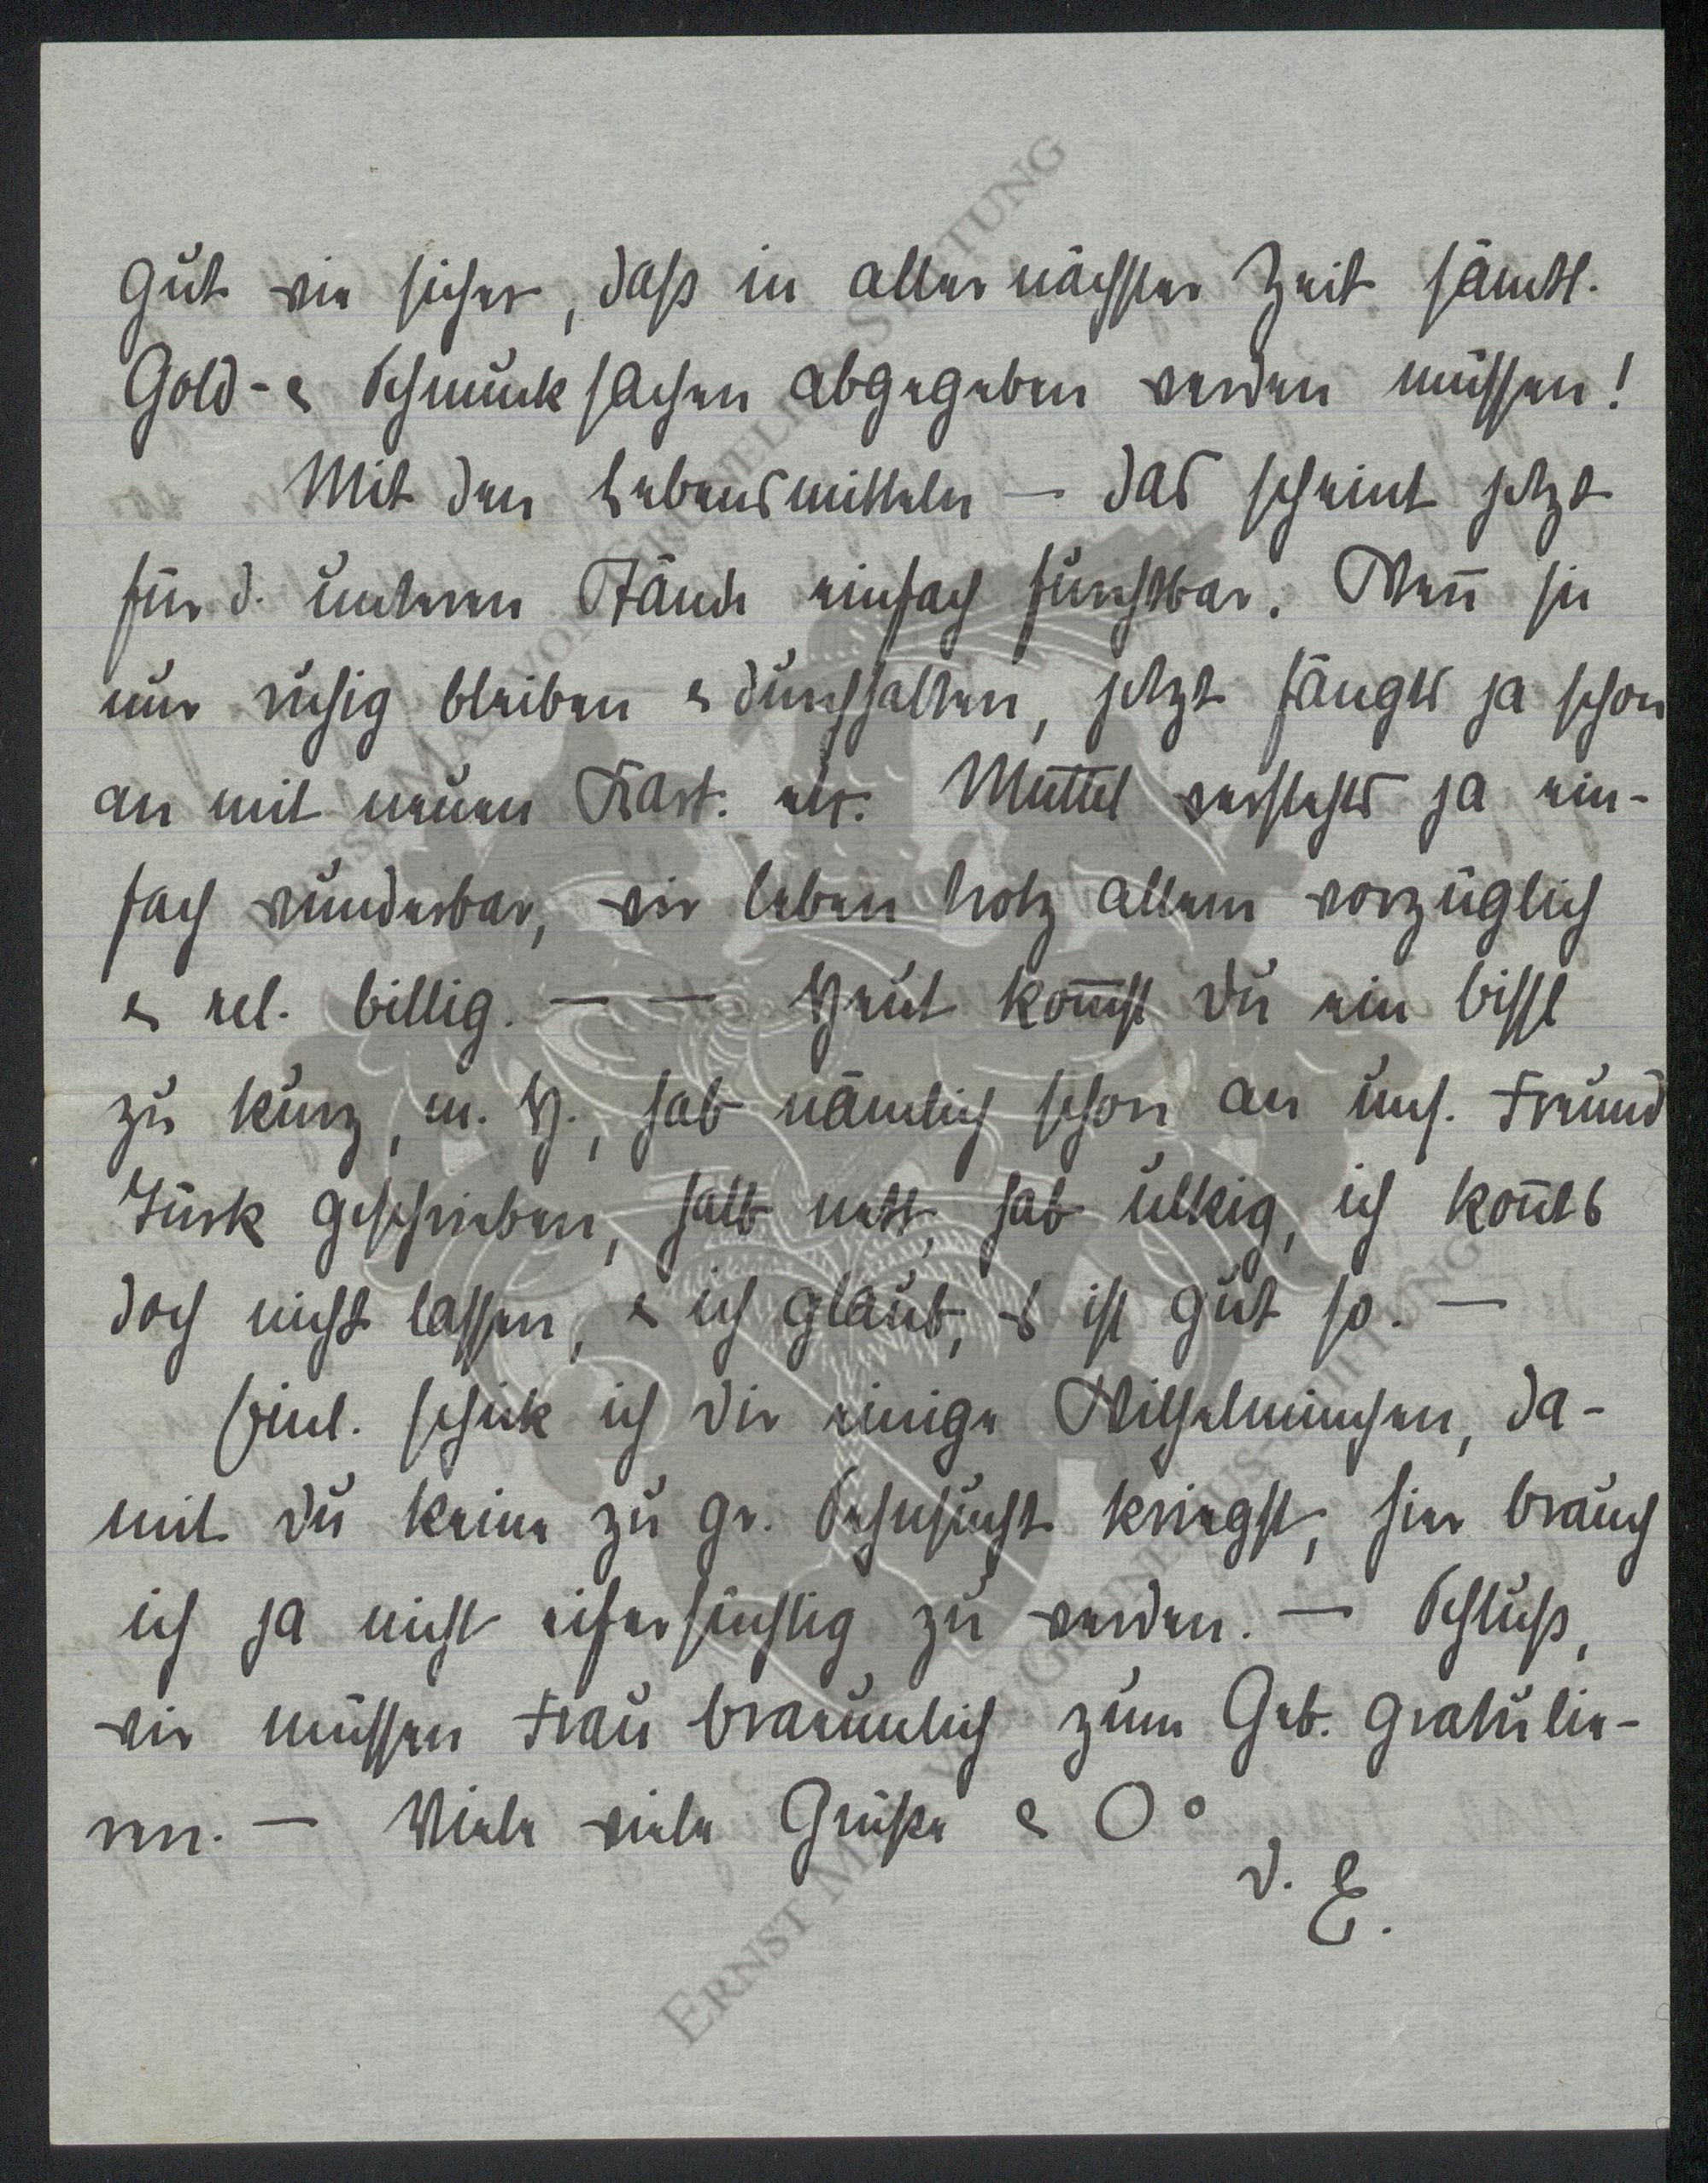 gut wie sicher, daß in allernächster Zeit sämtl.
Gold- & Schmucksachen abgegeben werden müssen!
Mit den Lebensmitteln — das scheint jetzt
für d. unteren Stände einfach furchtbar. Wen̅ sie
nur ruhig bleiben & durchhalten, jetzt fängts ja schon
an mit neuen Kart. etc. Muttel verstehts ja ein-
fach wunderbar, wir leben trotz allem vorzüglich
& rel. billig. — — Heut kom̅st Du ein bissl
zu kurz, m. H., hab nämlich schon an uns. Freund
Türk geschrieben, halb nett, hab ulkig, ich kon̅ts
doch nicht lassen, & ich glaub, es ist gut so. —
Einl. schick ich Dir einige Wilhelminchen, da-
mit Du keine zu gr. Sehnsucht kriegst, hier brauch
ich ja nicht eifersüchtig zu werden. — Schluß,
wir müssen Frau Braeunlich zum Geb. gratulie-
ren. — Viele viele Grüße & O°
D. E.
ERNST MARIA VON GRUNELIUS-STIFTUNG
ERNST MARIA VON GRUNELIUS-STIFTUNG